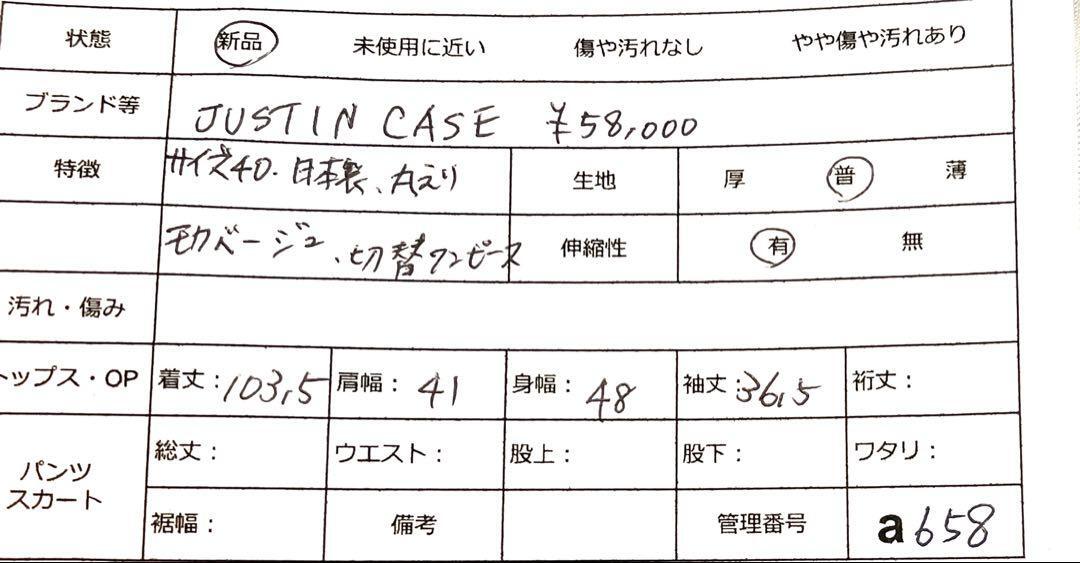 状態 新品 未使用に近い 傷や汚れなし やや傷や汚れあり
ブランド等 JUSTIN CASE ¥58,000
特徴 サイズ40、日本製、丸えり 生地 厚 普 薄
モカベージュ、切替ワンピース 伸縮性 有 無
汚れ・傷み
トップス・OP 着丈:103,5 肩幅:41 身幅:48 袖丈:36,5 裄丈:
パンツ スカート 総丈: ウエスト: 股上: 股下: ワタリ:
裾幅: 備考 管理番号 a658